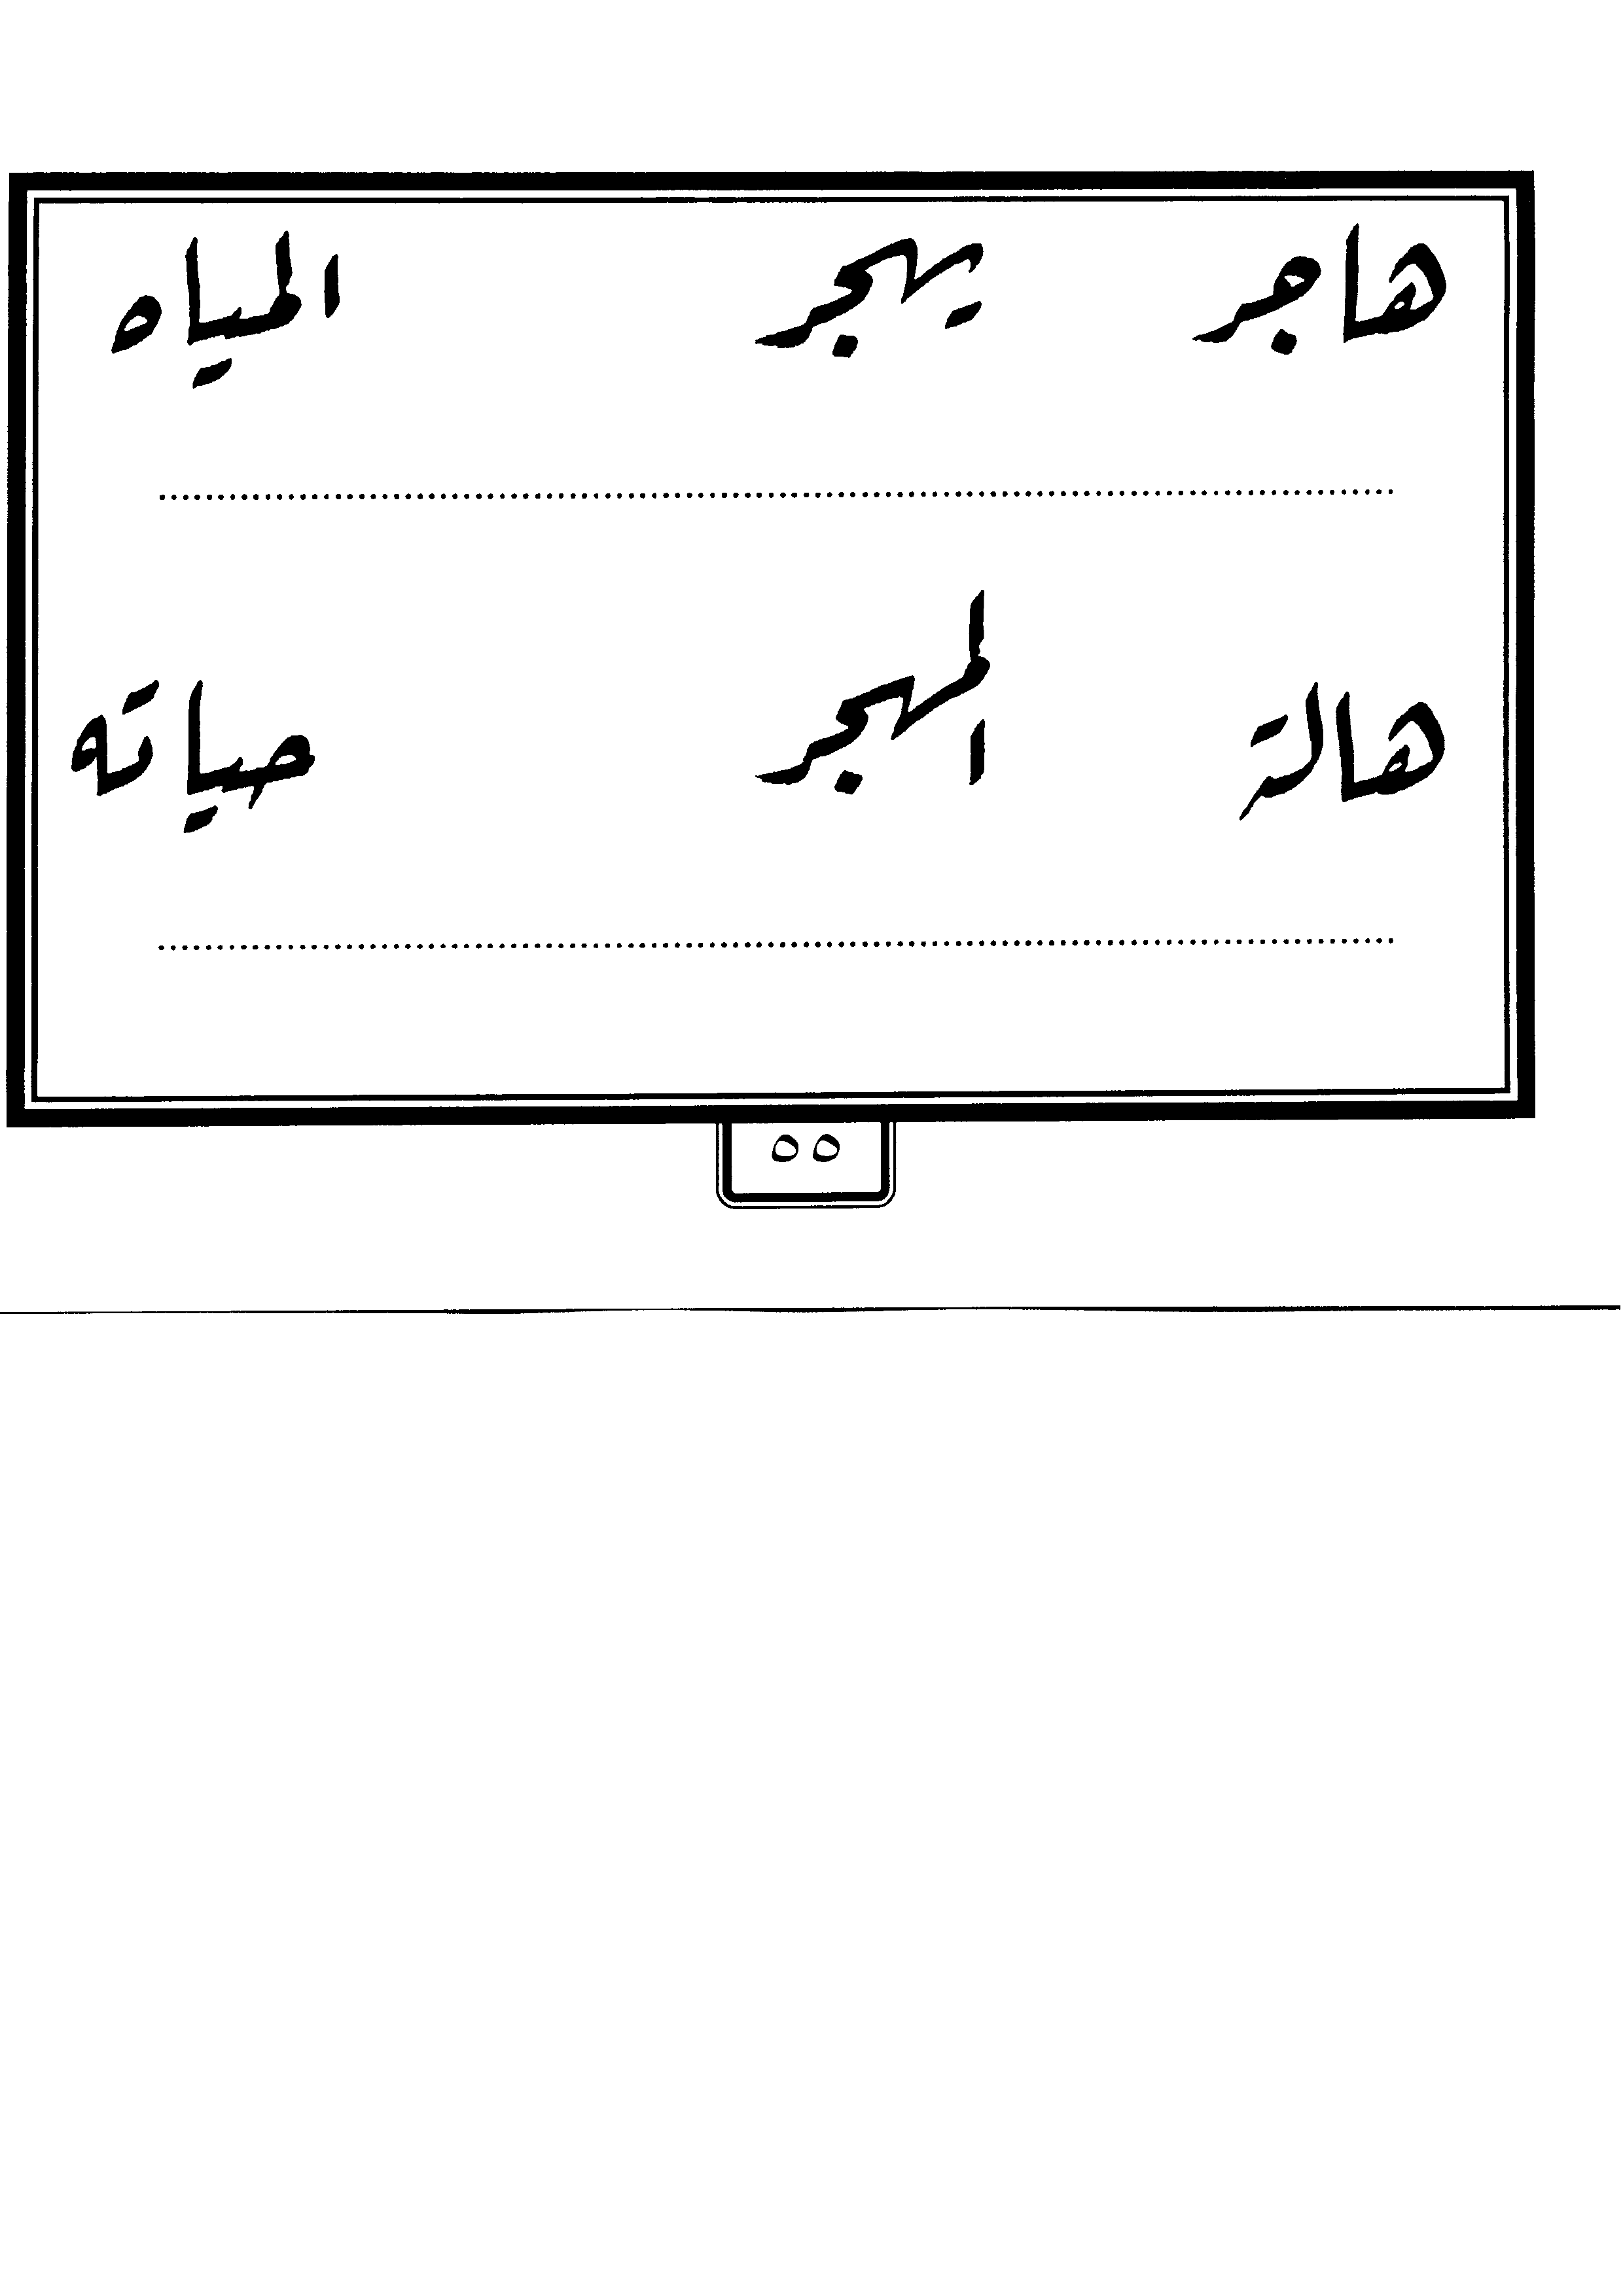 هاجر يهجر المياه
هالة المهجر صياته
٥٥